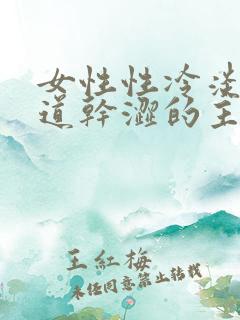 女性性冷淡
道幹澀的主
王紅梅
未经同意禁止转载